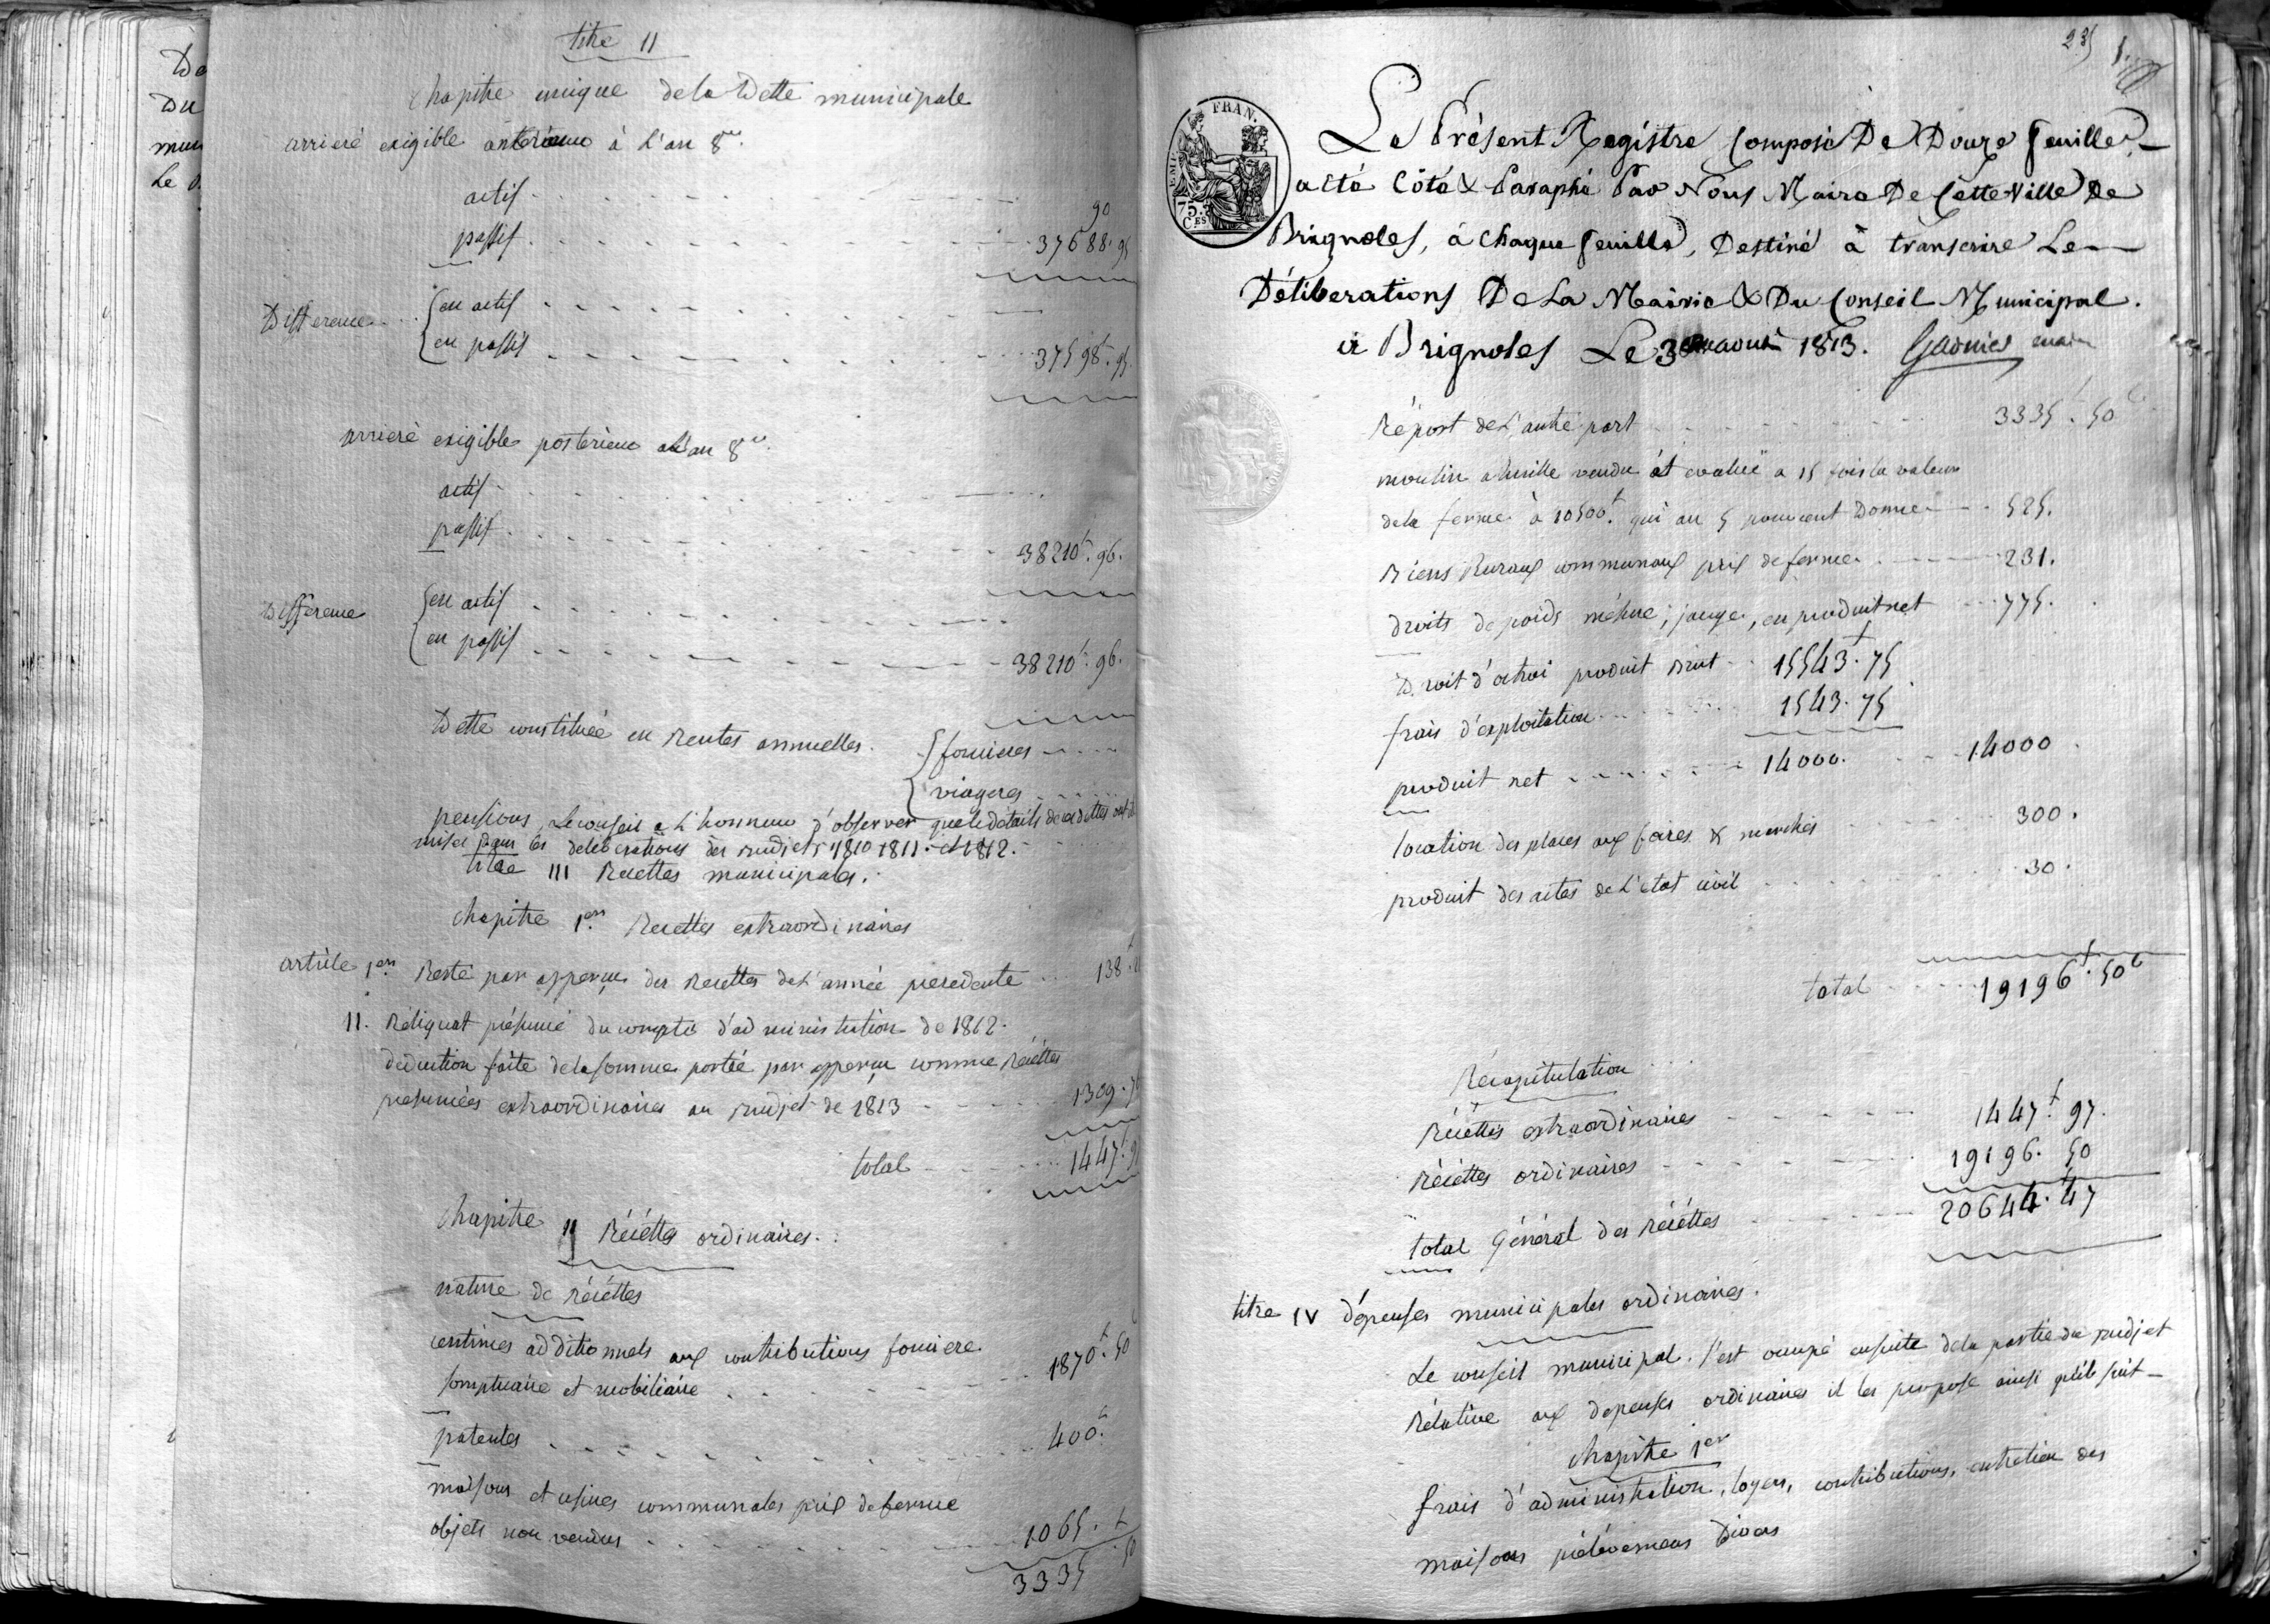 titre 11
chapitre unique de la Dette municipale
arrieré exigible anterieur à l'an 8
actif
90
passif 37688. 95
Difference { en actif
{ en passif 37598. 95
arrieré exigible posterieur a l'an 8
actif
passif
38210f. 96.
Difference { en actif
{ en passif 38210f. 96.
Dette constituée en Rentes annuelles. { foncieres
{ viageres
pensions, Le conseil a l'honneur d'observer que le détails de ces dettes
mises dans les deliberations des Budjets 1810 1811. et 1812.
titre 111 Recettes municipales.
chapitre 1er. Recettes extraordinaires
article 1er. Resté par apperçu des Recettes de l'année precedente 138
11. Réliquat présumé du compte d'administration de 1812.
deduction faite de la somme portée par apperçu comme Recéttes
presumées extraordinaires au Budjet de 1813 1309.
total 1447f.
chapitre 11 Récéttes ordinaires.
nature de Récéttes
centimes additionnels aux contributions fonciere
somptuaire et mobiliaire 1870f. 50
patentes 400.
maisons et usines communales prix de ferme
objets non vendus 1065.
3335 50
De
Du
mun
Le
235
FRAN.
75
Ces
Le Présent Registre Composé De Douze feuille
a été Côté & Paraphé Par Nous Maire De Cette Ville De
Brignoles, à Chaque feuille, Destiné à transcrire Le
Déliberations De La Mairie & Du Conseil Municipal.
à Brignoles Le 30 aout 1813. maire
Réport de L'autre part 3335f. 50c
moulin a huille vendu et evalué a 15 fois la valeur
de la ferme à 10500f. qui au 5 pour cent Donne 525.
Biens Ruraux communaux prix de ferme 231.
droits de poids mésure, jauge, en produit net 775.
Droit d'octroi produit Brut 15543f. 75
frais d'exploitation 1543. 75
produit net 14000. 14000
location des places aux foires & marchés 300.
produit des actes de L'etat civil 30.
total 19196f. 50c
Récapitulation
Récéttes extraordinaires 1447f. 97.
Récéttes ordinaires 19196. 50
total Général des Récéttes 20644. 47
titre IV dépenses municipales ordinaires.
Le conseil municipal s'est occupé ensuite de la partie du Budjet
Rélative aux depenses ordinaires il les propose ainsi qu'il suit
chapitre 1er
frais d'administration, loyers, contributions, entretien des
maisons prélèvemens Divers